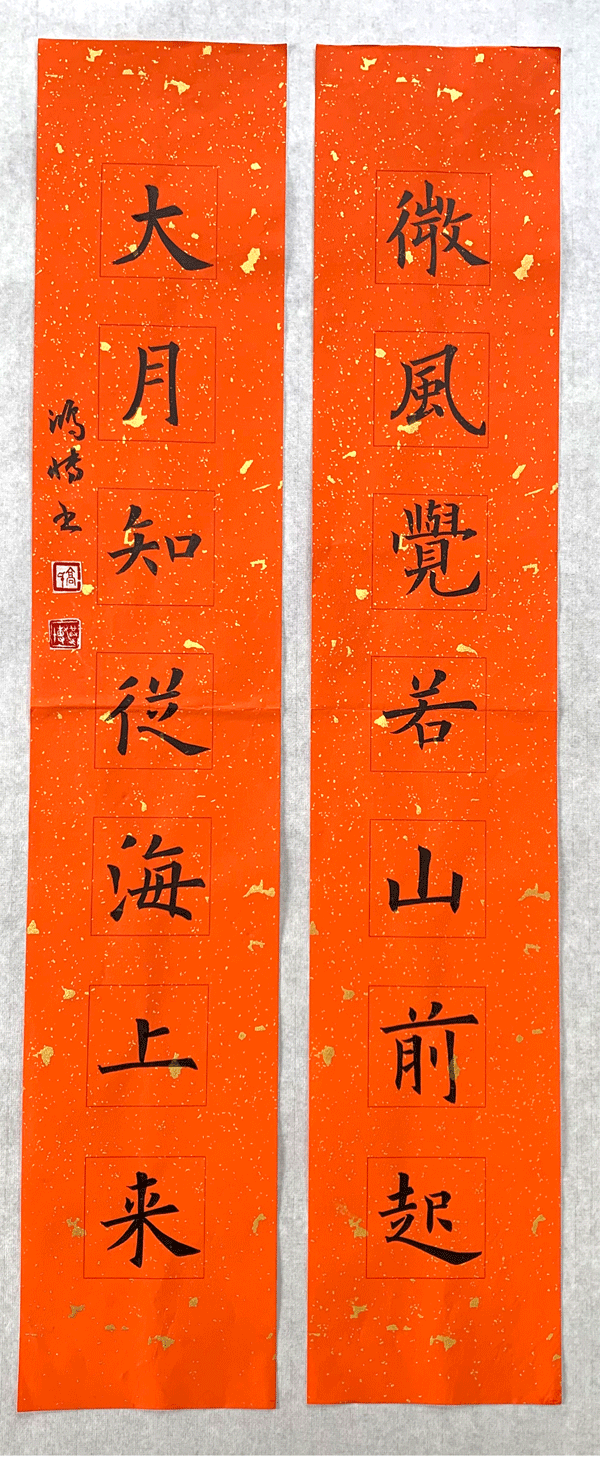 微風覺若山前起
大月知従海上来
鴻博书